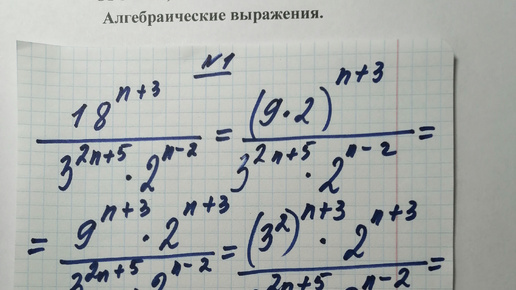 Алгебраические выражения.
№1
18^{n+3} / (3^{2n+5} · 2^{n-2}) = (9·2)^{n+3} / (3^{2n+5} · 2^{n-2}) =
= 9^{n+3} · 2^{n+3} / (3^{2n+5} · 2^{n-2}) = (3^2)^{n+3} · 2^{n+3} / (3^{2n+5} · 2^{n-2}) =